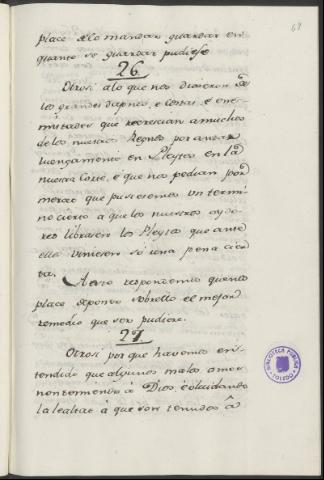 68
place de lo mandar guardar en
quanto se guardar pudiese
26
Otrosi a lo que nos dixeron de
los grandes dapnos, e costas, e ene-
mistades que recrescian a muchos
de los nuestros Regnos por andar
luengamente en Pleytos en la
nuestra Corte, e que nos pedian por
merced que pusiesemos un termi-
no cierto a que los nuestros oydo-
res librasen los Pleytos que ante
ella viniesen so una pena cier-
ta.
A esto respondemos que nos
place de poner sobrello el mejor
remedio que ser pudiere.
27
Otrosi por que havemos en-
tendido que algunos malos omes
non temiendo à Dios, é olvidando
la lealtat à que son tenudos à
BIBLIOTECA PUBLICA
TOLEDO